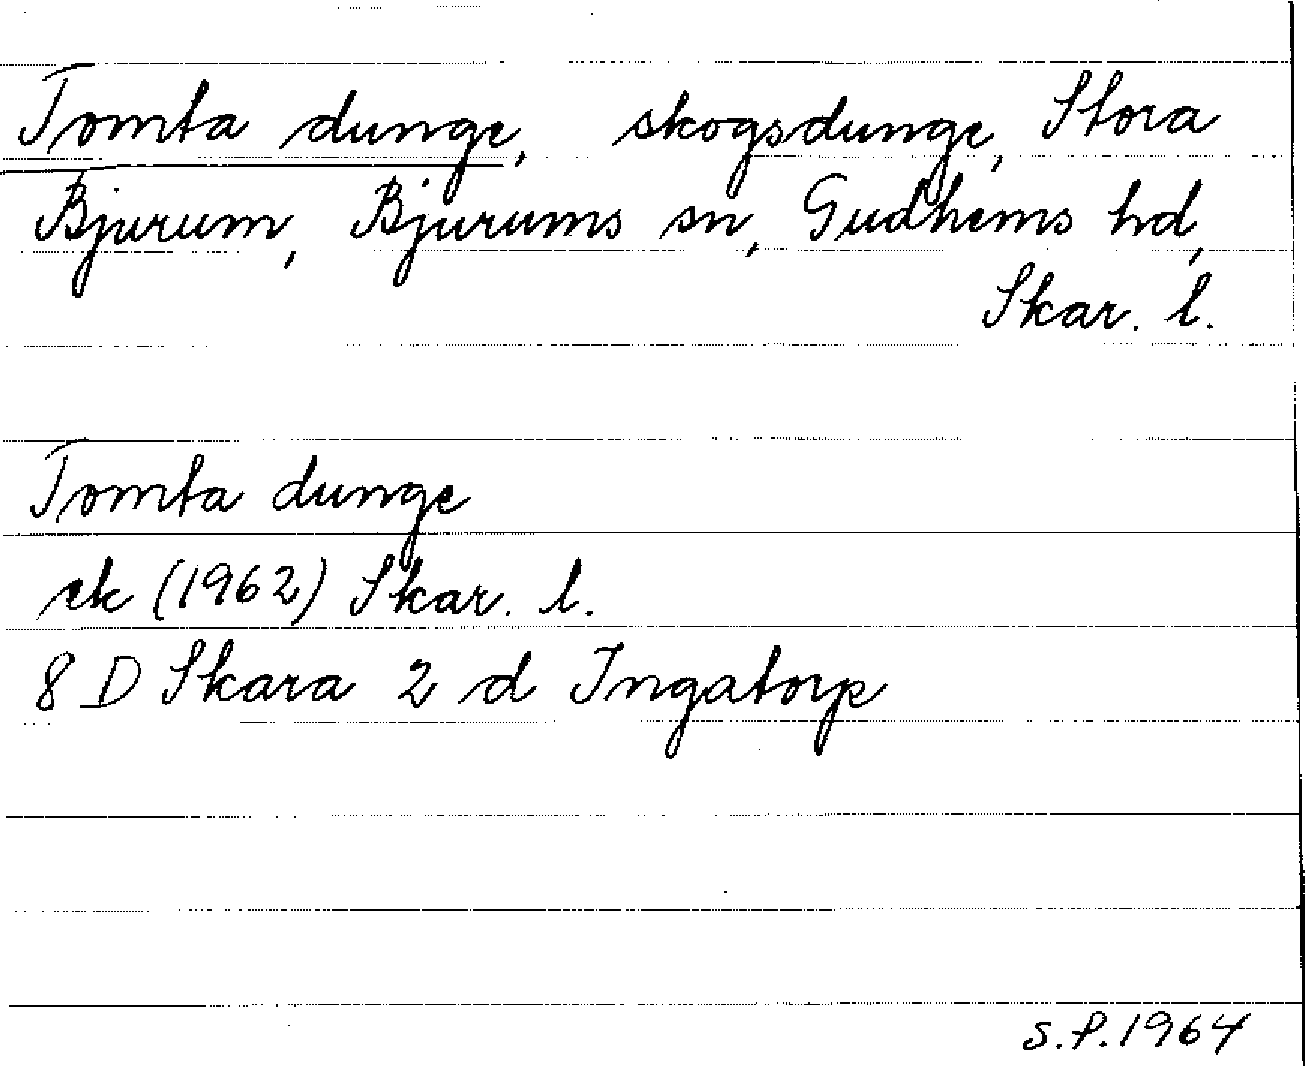 Tomta dunge, skogsdunge, Stora
Bjurum, Bjurums sn, Gudhems hd,
Skar. l.
Tomta dunge
ek (1962) Skar. l.
8 D Skara 2 d Ingatorp
S.P. 1964